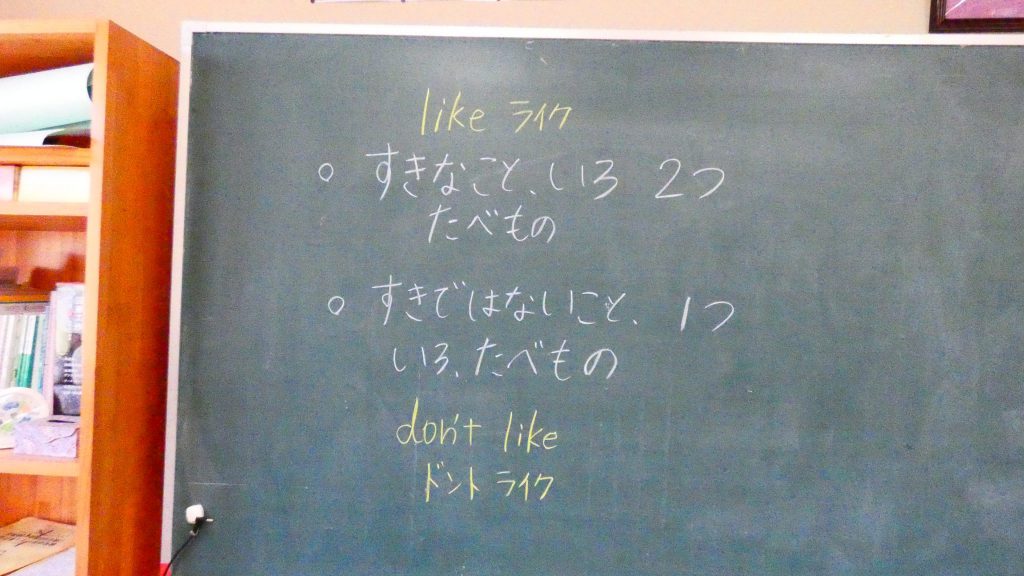 like ライク
○ すきなこと、いろ 2つ
たべもの
○ すきではないこと、 1つ
いろ、たべもの
don't like
ドント ライク